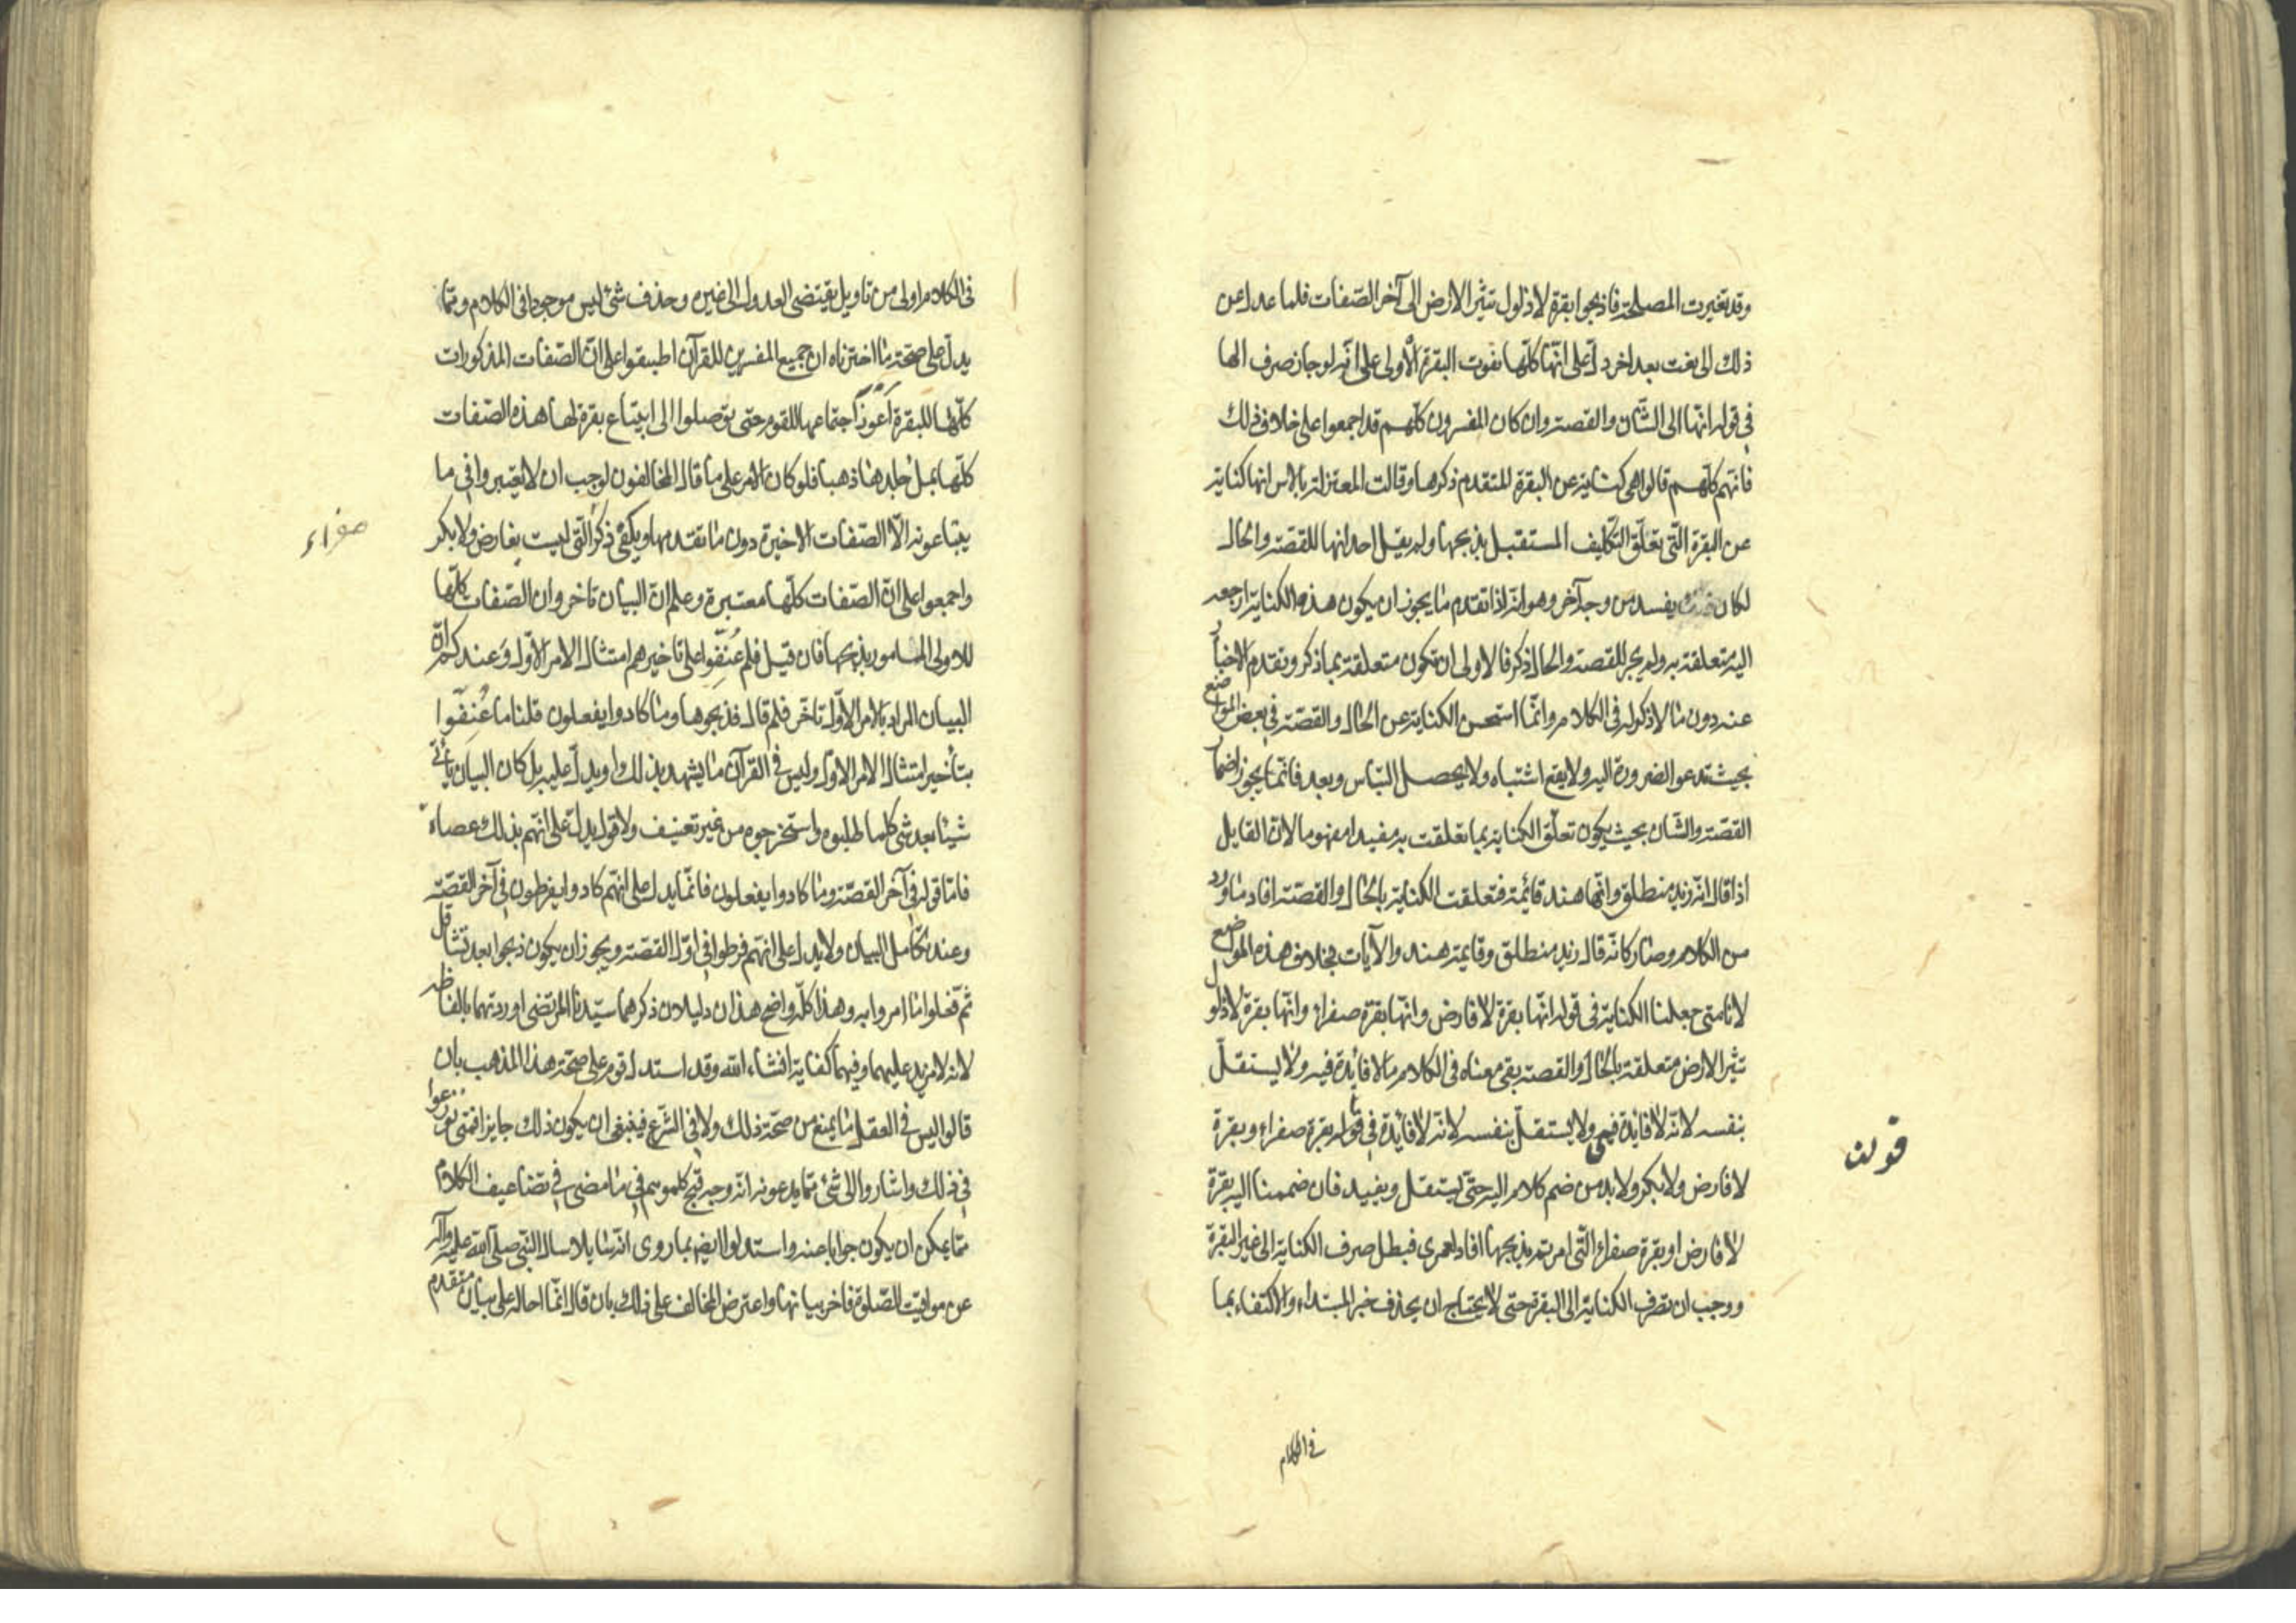 وقد تغيرت المصلحة فاذبحوا بقرة لا ذلول تثير الارض الى آخر الصّفات فلما عدل عن
ذلك الى نعت بعد اخر دلّ على انّها كلّها نعوت البقرة الأولى على انّه لو جاز صرف الها
في قوله انّها الى الشّان والقصّة وان كان المفسرون كلّهم قد اجمعوا على خلاف ذلك
فانّهم كلّهم قالوا هي كناية عن البقرة المتقدم ذكرها وقالت المعتزلة بالامس انها كناية
عن البقرة التّي تعلّق التكليف المستقبل بذبحها ولم يقل احد انها للقصّة والحال
لكان يفسد من وجه آخر وهو انّه اذا تقدم ما يجوز ان يكون هذه الكناية راجعه
اليه متعلقة به ولم يجر للقصة والحال ذكر فالاولى ان تكون متعلقة بما ذكر وتقدم الاخبار
عنه دون ما لا ذكر له في الكلام وانّما استحسن الكناية عن الحال والقصّة في بعض المواضع
بحيث تدعو الضرورة اليه ولا يقع اشتباه ولا يحصل التباس وبعد فانّما يجوز اضمار
القصّة والشّان بحيث يكون تعلّق الكناية بما تعلقت به مفيدا مفهوما لانّ القايل
اذا قال انّه زيد منطلق وانّها هند قائمة فتعلقت الكناية بالحال والقصّة افاد ما ورد
من الكلام وصار كانّه قال زيد منطلق وقايمة هند والآيات بخلاف هذه المواضع
لانا متى جعلنا الكناية في قوله انّها بقرة لا فارض وانّها بقرة صفراء وانّها بقرة لا ذلول
تثير الارض متعلقة بالحال والقصّة بقي معناه في الكلام ما لا فائدة فيه ولا يستقلّ
بنفسه لانّه لا فايدة فيه ولا يستقلّ بنفسه لانّه لا فايدة في قوله بقرة صفراء وبقرة
قولت
لا فارض ولا بكر ولا بد من ضم كلام اليه حتّى يستقل ويفيد فان ضممنا اليه بقرة
لا فارض او بقرة صفراء التّي امرتم بذبحها افاد لعمري فبطل صرف الكناية الى غير البقرة
ووجب ان تصرف الكناية الى البقرة حتى لا يحتاج ان يحذف خبر المبتداء والاكتفاء بما
في الكلام
في الكلام اولى من تاويل يقتضى العدول الى غيره وحذف شئ ليس موجودا في الكلام وممّا
يدلّ على صحّة ما اخترناه ان جميع المفسرين للقرآن اطبقوا على انّ الصّفات المذكورات
كلّها للبقرة أعوز اجتماعها للقوم حتى توصلوا الى ابتياع بقرة لها هذه الصّفات
كلّها بمل جلدها ذهبا فلو كان الامر على ما قال المخالفون لوجب ان لا يعتبروا في ما
يبتاعونه الّا الصّفات الاخيرة دون ما تقدمها ويلغى ذكر التّي ليست بفارض ولا بكر
صفراء
واجمعوا على انّ الصّفات كلّها معتبرة وعلم انّ البيان تاخر وان الصّفات كلّها
للاولى المامور بذبحها فان قيل فلم عُنّفوا على تاخيرهم امتثال الامر الاوّل وعندكم انّ
البيان المراد بالامر الاوّل تاخّر فلم قال فذبحوها وما كادوا يفعلون قلنا ما عُنِّفُوا
بتأخير امتثال الامر الاول وليس في القرآن ما يشهد بذلك او يدلّ عليه بل كان البيان يأتي
شيئا بعد شئ كلما طلبوه واستخرجوه من غير تعنيف ولا قول يدلّ على انّهم بذلك عصاة
فامّا قوله في آخر القصّة وما كادوا يفعلون فانّما يدلّ على انّهم كادوا يفرطون في آخر القصّة
وعند تكامل البيان ولا يدل على انّهم فرطوا في اوّل القصّة ويجوز ان يكون ذبحوا بعد تثاقل
ثمّ فعلوا ما امروا به وهذا كلّه واضح هذان دليلان ذكرهما سيّدنا المرتضى اوردتهما بالفاظه
لانه لا مزيد عليهما وفيهما كفاية انشاء الله وقد استدل قوم على صحّة هذا المذهب بان
قالوا ليس في العقل ما يمنع من صحّة ذلك ولا في الشّرع فينبغى ان يكون ذلك جايزا فمتى نوزعوا
في ذلك واشاروا الى شئ ممّا يدعونه انّه وجه قبح كلموهم في ما مضى في تضاعيف الكلام
ممّا يمكن ان يكون جوابا عنه واستدلوا ايضا بما روى انّ سايلا سال النّبي صلّى الله عليه وآله
عن مواقيت الصّلوة فاخر بيانها واعترض المخالف على ذلك بان قال انّما احاله على بيان متقدم